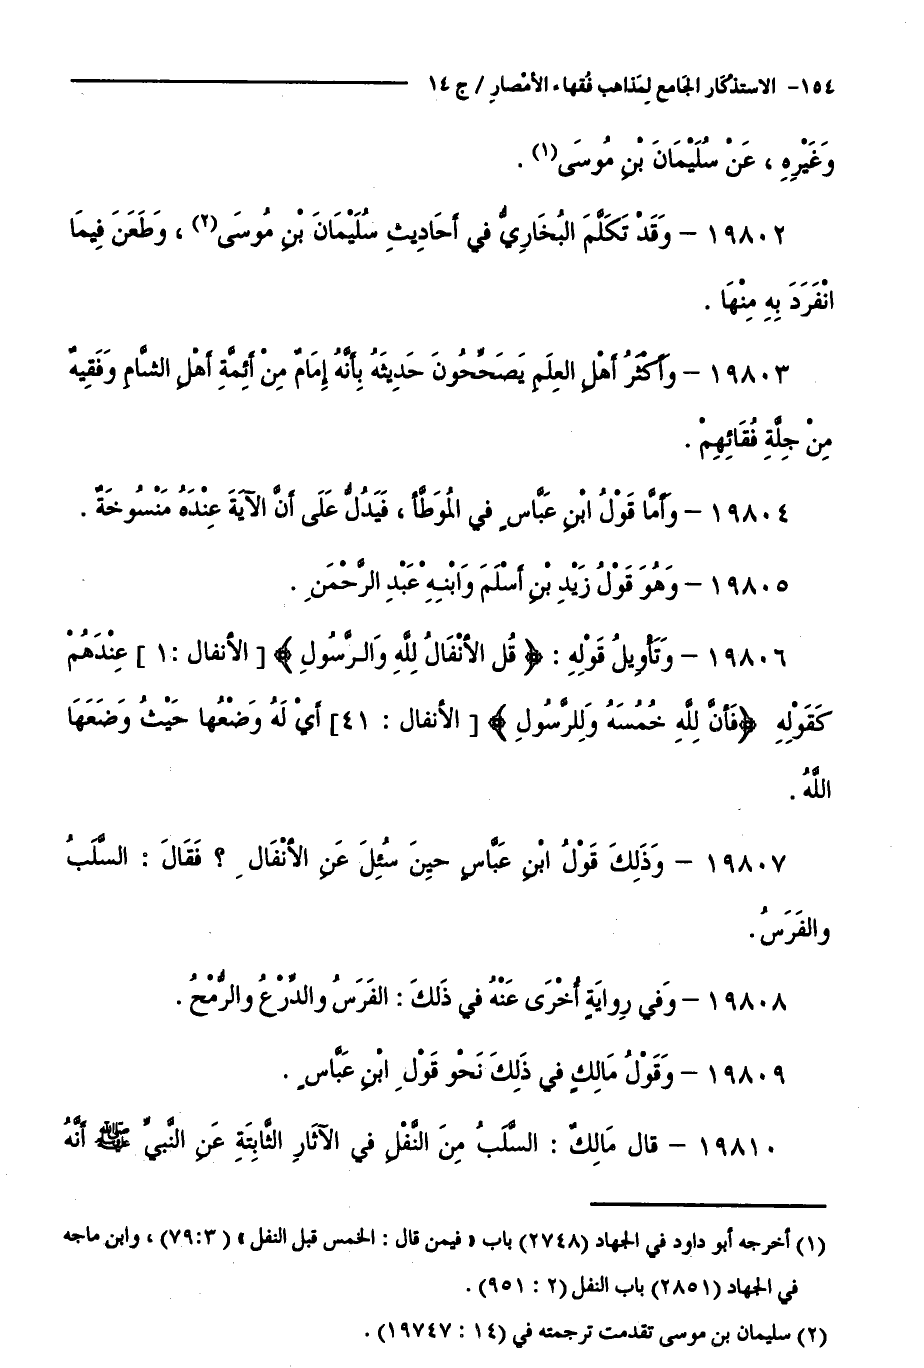 ١٥٤- الاستذكار الجامع لِمَذاهب فُقهاء الأمْصارِ / ج ١٤
وَغَيْرِهِ ، عَنْ سُلَيْمَانَ بْنِ مُوسَى(١) .
١٩٨٠٢ – وَقَدْ تَكَلَّمَ البُخَارِيُّ في أحَادِيثِ سُلَيْمَانَ بْنِ مُوسَى(٢) ، وَطَعَنَ فِيمَا
انْفَرَدَ بِهِ مِنْهَا .
١٩٨٠٣ – وأكْثَرُ أهْلِ العِلَمِ يَصَحِّحُونَ حَدِيثَهُ بِأنَّهُ إِمَامٌ مِنْ أئِمَّةِ أهْلِ الشَّامِ وَفَقِيهٌ
مِنْ جِلَّةِ فُقَائِهِمْ .
١٩٨٠٤ – وَأمَّا قَوْلُ ابْنِ عَبَّاسٍ في المُوَطَّأ ، فَيَدُلُّ عَلَى أنَّ الآيَةَ عِنْدَهُ مَنْسُوخَةٌ .
١٩٨٠٥ – وَهُوَ قَوْلُ زَيْدِ بْنِ أسْلَمَ وَابْنِهِ عَبْدِ الرَّحْمَنِ .
١٩٨٠٦ – وَتَأوِيلُ قَوْلِهِ : ﴿ قُل الأنْفَالُ لِلَّهِ وَالرَّسُولِ ﴾ [ الأنفال :١ ] عِنْدَهُمْ
كَقَوْلِهِ ﴿فَأنَّ لِلَّهِ خُمُسَهُ وَلِلرَّسُولِ ﴾ [ الأنفال : ٤١] أيْ لَهُ وَضْعُها حَيْثُ وَضَعَهَا
اللَّهُ .
١٩٨٠٧ – وَذَلِكَ قَوْلُ ابْنِ عَبَّاسٍ حينَ سُئِلَ عَنِ الأنْفَالِ ؟ فَقَالَ : السَّلَبُ
والفَرَسُ .
١٩٨٠٨ – وَفي رِوايَةٍ أُخْرَى عَنْهُ في ذَلكَ : الفَرَسُ والدِّرْعُ والرُّمْحُ .
١٩٨٠٩ – وَقَوْلُ مَالِكٍ في ذَلكَ نَحْوَ قَوْلِ ابْنِ عَبَّاسٍ .
١٩٨١٠ – قال مَالِكٌ : السَّلَبُ مِنَ النَّفْلِ في الآثَارِ الثَّابِتَةِ عَنِ النَّبيِّ ﷺ أنَّهُ
(١) أخرجه أبو داود في الجهاد (٢٧٤٨) باب « فيمن قال : الخمس قبل النفل » ( ٧٩:٣) ، وابن ماجه
في الجهاد (٢٨٥١) باب النفل (٢ : ٩٥١) .
(٢) سليمان بن موسى تقدمت ترجمته في (١٤ : ١٩٧٤٧) .